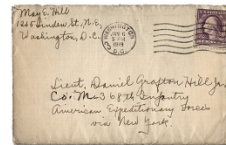 May E. Hill
1205 Linden St. N.E.
Washington, D.C.
WASHINGTON
D.C.
Lieut. Daniel Grafton Hill Jr.
Co. M-368th Infantry
American Expeditionary Forces
via New York.